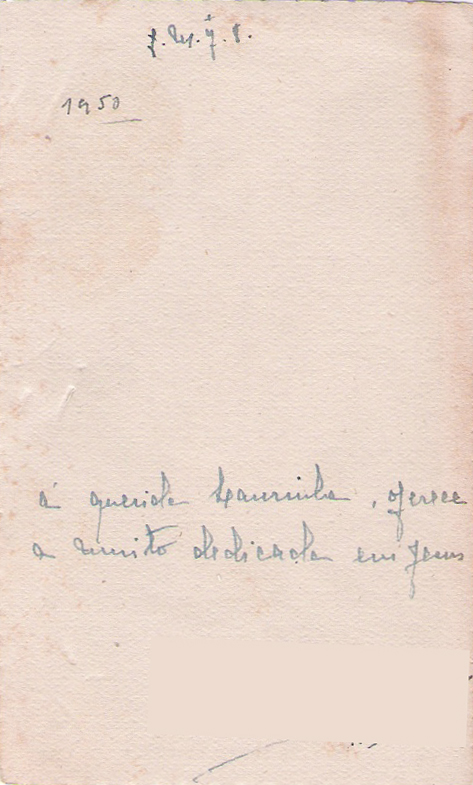 J. M. J. T.
1950
à querida Laurinha, oferece
a muito dedicada em Jesus